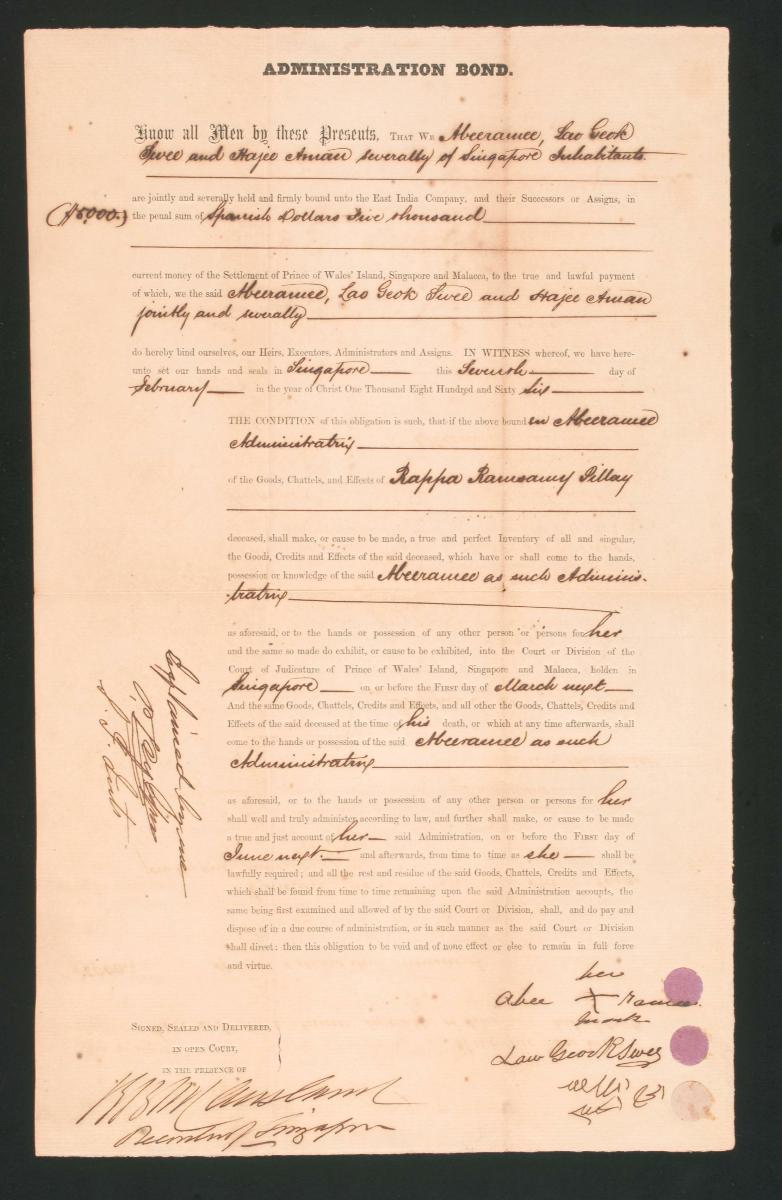 ADMINISTRATION BOND.
Know all Men by these Presents, THAT WE Abeeramee, Lao Geok
Swee and Hajee Aman severally of Singapore Inhabitants
are jointly and severally held and firmly bound unto the East India Company, and their Successors or Assigns, in
($5000.) the penal sum of Spanish Dollars Five thousand
current money of the Settlement of Prince of Wales' Island, Singapore and Malacca, to the true and lawful payment
of which, we the said Abeeramee, Lao Geok Swee and Hajee Aman
jointly and severally
do hereby bind ourselves, our Heirs, Executors, Administrators and Assigns. IN WITNESS whereof, we have here-
unto set our hands and seals in Singapore this Seventh day of
February in the year of Christ One Thousand Eight Hundred and Sixty six
THE CONDITION of this obligation is such, that if the above bound en Abeeramee
Administratrix
of the Goods, Chattels, and Effects of Rappa Ramsamy Pillay
deceased, shall make, or cause to be made, a true and perfect Inventory of all and singular,
the Goods, Credits and Effects of the said deceased, which have or shall come to the hands,
possession or knowledge of the said Abeeramee as such Adminis-
tratrix
as aforesaid, or to the hands or possession of any other person or persons for her
and the same so made do exhibit, or cause to be exhibited, into the Court or Division of the
Court of Judicature of Prince of Wales' Island, Singapore and Malacca, holden in
Singapore on or before the FIRST day of March next
And the same Goods, Chattels, Credits and Effects, and all other the Goods, Chattels, Credits and
Effects of the said deceased at the time of his death, or which at any time afterwards, shall
come to the hands or possession of the said Abeeramee as such
Administratrix
as aforesaid, or to the hands or possession of any other person or persons for her
shall well and truly administer according to law, and further shall make, or cause to be made
a true and just account of her said Administration, on or before the FIRST day of
June next and afterwards, from time to time as she shall be
lawfully required; and all the rest and residue of the said Goods, Chattels, Credits and Effects,
which shall be found from time to time remaining upon the said Administration accounts, the
same being first examined and allowed of by the said Court or Division, shall, and do pay and
dispose of in a due course of administration, or in such manner as the said Court or Division
shall direct: then this obligation to be void and of none effect or else to remain in full force
and virtue.
Explained by me
her
Abee X ramee.
mark
Law Geock Swee
SIGNED, SEALED AND DELIVERED,
IN OPEN COURT,
IN THE PRESENCE OF
Recorder of Singapore